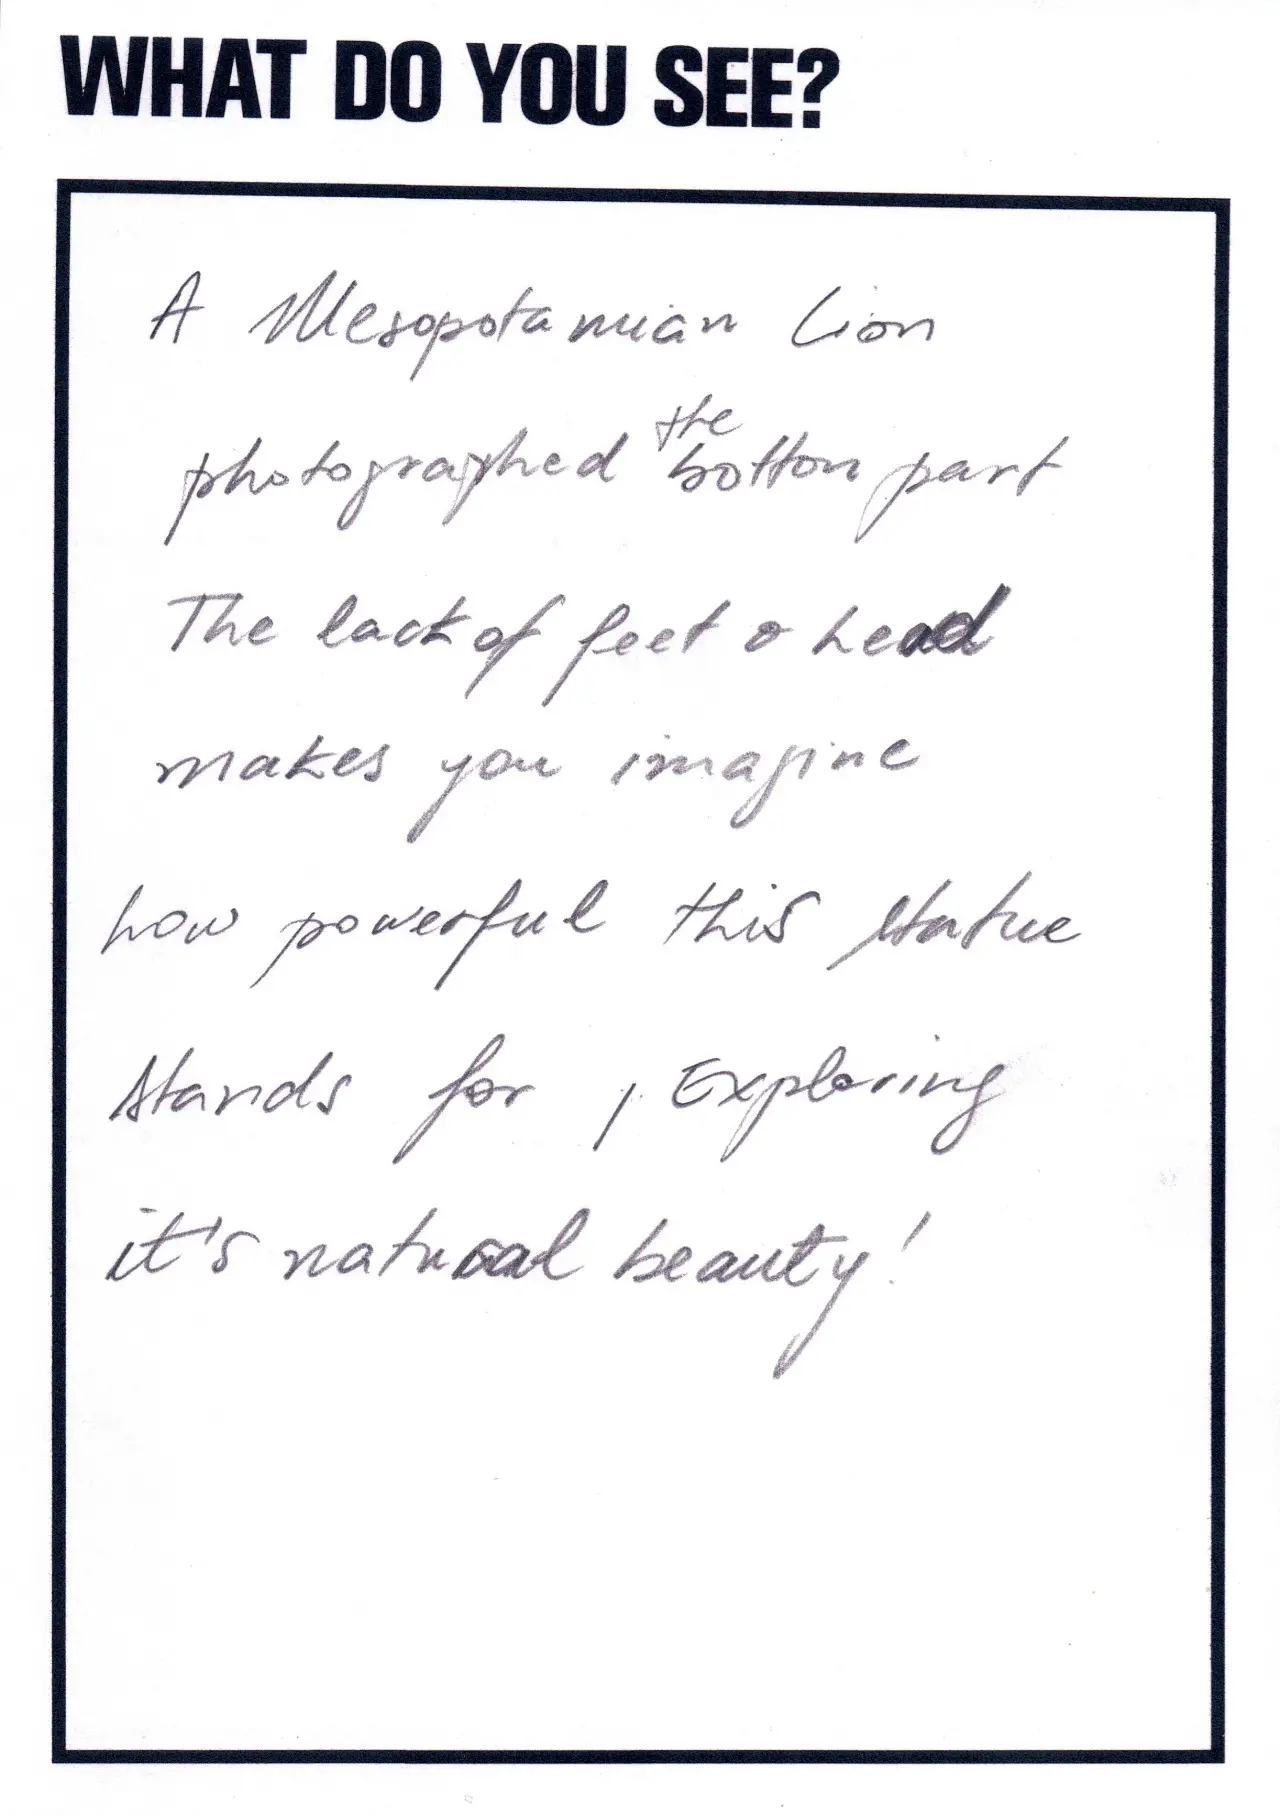 WHAT DO YOU SEE?
A Mesopotamian Lion
photographed the botton part
The lack of feet & head
makes you imagine
how powerful this statue
stands for, Exploring
it's natural beauty!